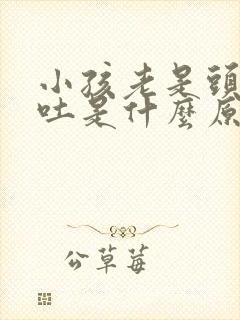 小孩老是頭
吐是什麼原
公草莓